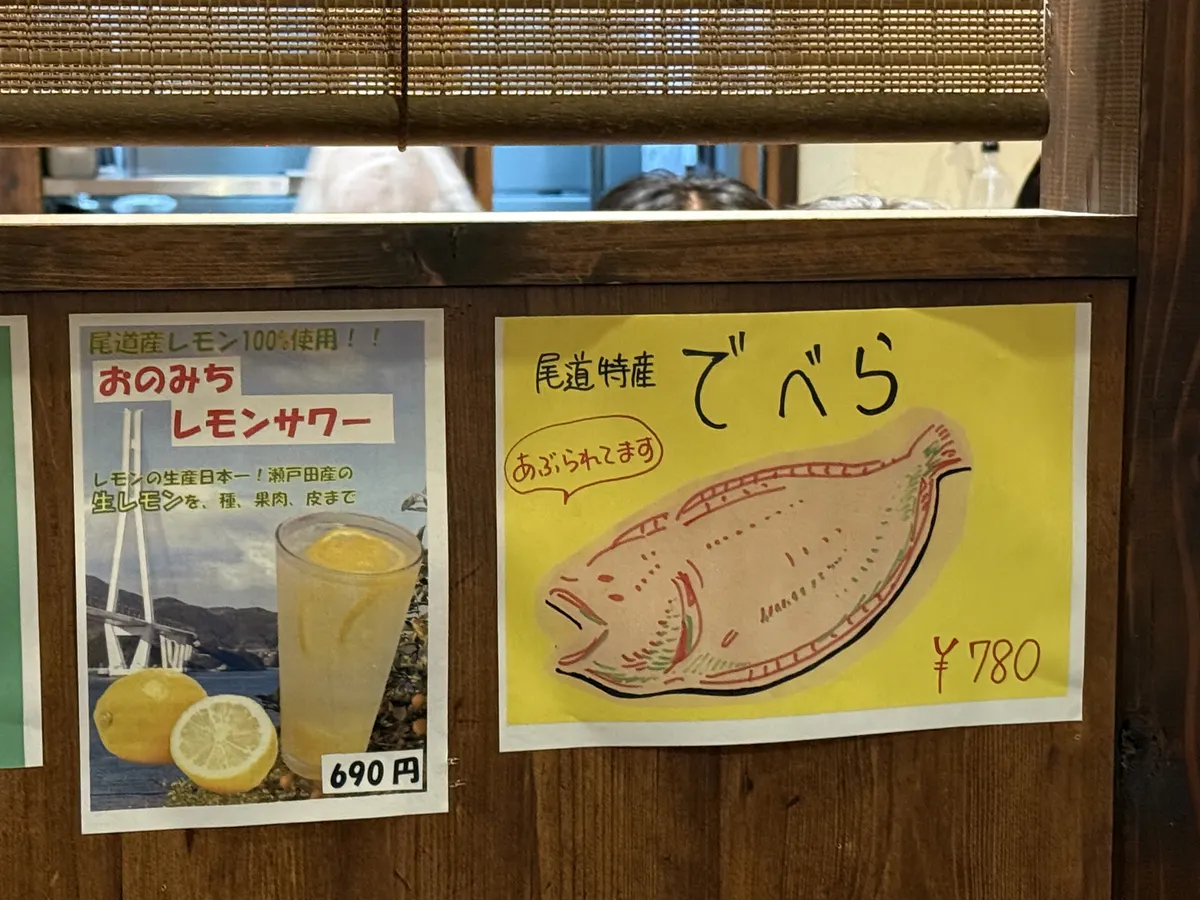 尾道産レモン100%使用！！
おのみち
レモンサワー
レモンの生産日本一！瀬戸田産の
生レモンを、種、果肉、皮まで
690円
尾道特産 でべら
あぶられてます
¥780